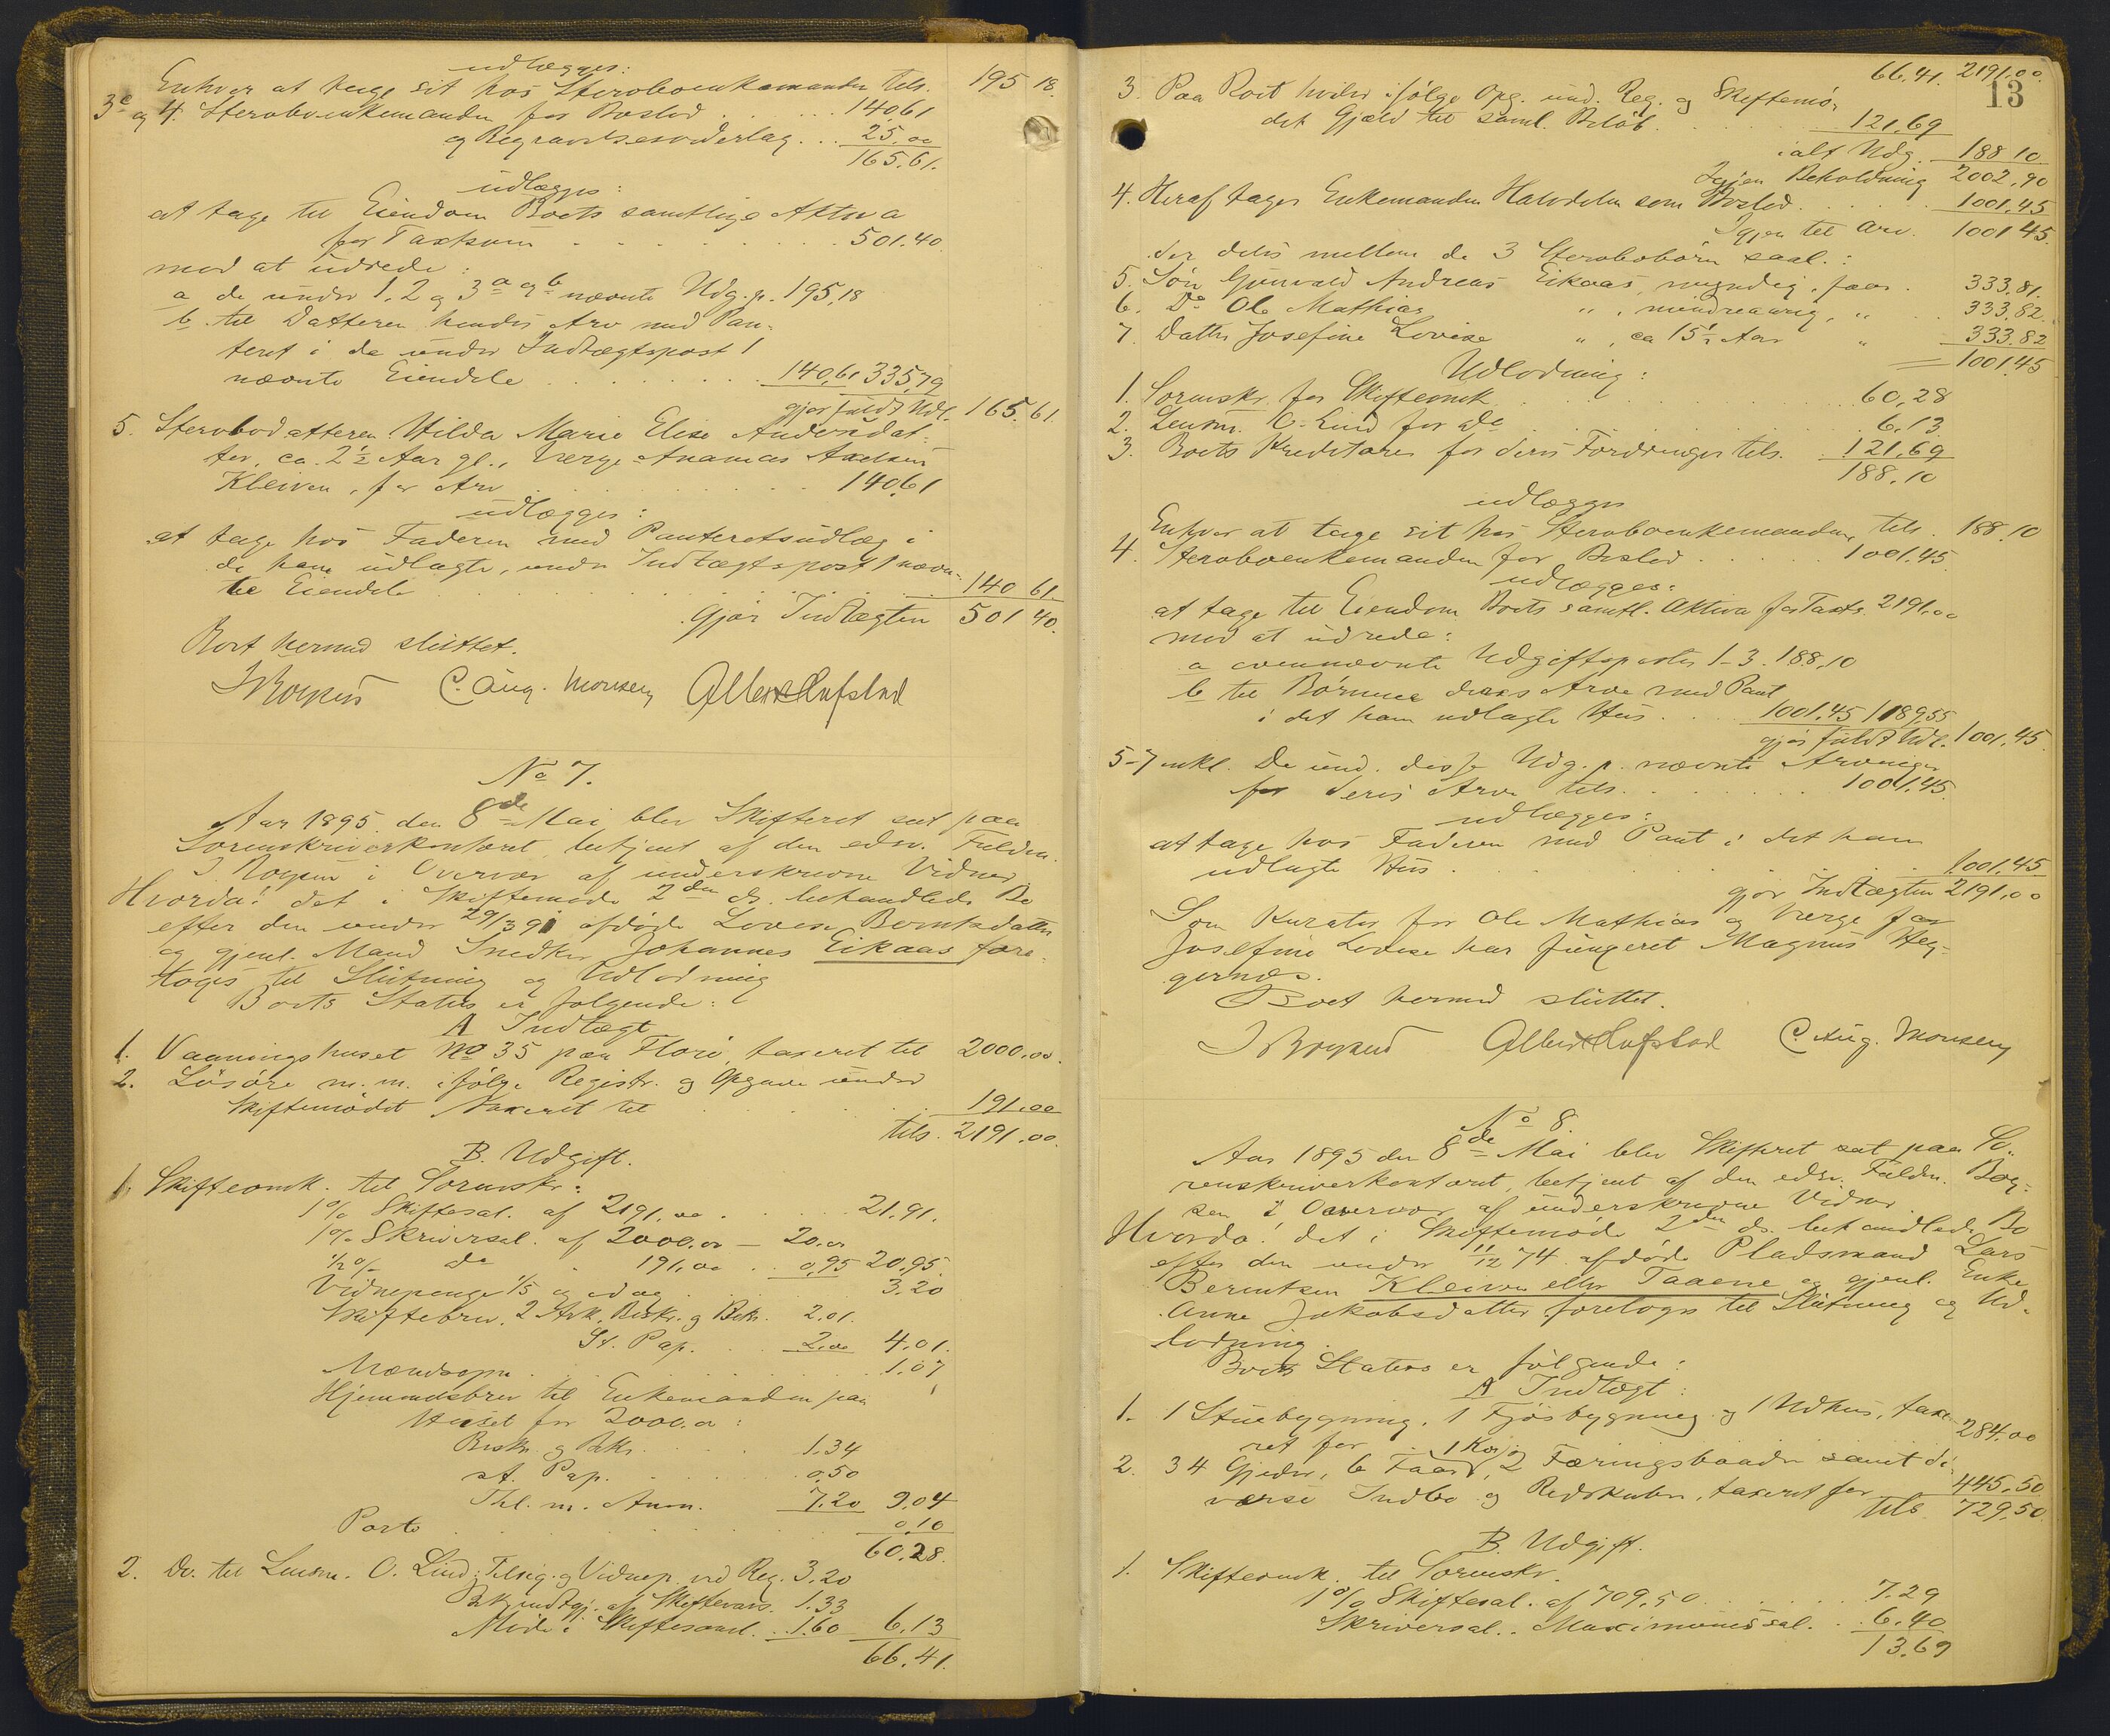 udlægges:
Enhver at tage sit hos Sterboenkemanden tils. 195 18.
3c og 4. Sterboenkemanden for Boslod . . . 140.61
og Begravelsesvederlag . . . 25.00
165.61.
udlægges:
at tage til Eiendom Boets samtlige Aktiva
for Taxtsum . . . 501.40
mod at udrede:
a de under 1, 2 og 3a og b nævnte Udg.p. 195.18
b. til Datteren hendes Arv mod Pan-
teret i de under Indtægtspost 1
nævnte Eiendele . . . 140.61 335.79
gjør fuldt Udl. 165.61.
5. Sterbodatteren Hilda Marie Elise Andersdat-
ter, ca. 2½ Aar gl., Værge Ananias
Kleiven, for Arv . . . 140.61
udlægges:
at tage hos Faderen med Panteretsudlæg i
de ham udlagte, under Indtægtspost 1 nævn-
te Eiendele . . . 140 61.
Gjør Indtægten 501 40.
Boet hermed sluttet.
C. Aug. Monsen Albert Hufstad
No 7.
Aar 1895 den 8de Mai blev Skifteret sat paa
Sorenskriverkontoret, betjent af den edsv. Fuldm.
i Overvær af underskrevne Vidner.
Hvorda! det i Skiftemøde 2den ds. behandlede Bo
efter den under 29/3 91 afdøde Lovise Berntsdatter
og gjenl. Mand Snedker Johannes Eikaas fore-
toges til Slutning og Udlodning
Boets Status er følgende:
A Indtægt
1. Vaaningshuset No 35 paa Florø, taxeret til 2000.00.
2. Løsøre m.m. ifølge Registr. og Opgave under
Skiftemødet taxeret til . . . 191.00
tils. 2191.00.
B. Udgift.
1. Skifteomk. til Sorenskr:
1% Skiftesal. af 2191.00 . . . 21.91.
1% Skriversal. af 2000.00 — 20.00
½% do 191.00 . . 0.95 20.95
Vidnepenge 1/5 og idag . . . 3.20
Skiftebrev. 2 Ark, Beskr. og Bekr. 2.01.
St. Pap. . . 2.00 4.01.
. . . 1.07
Hjemmelsbrev til Enkemanden paa
Huset for 2000.00:
Beskr. og Bekr. . . . 1.34
st. Pap. . . . 0.50
Thl. m. Anm. 7.20 9.04
Porto . . . 0.10
60.28.
2. Do. til Lensm. O. Lind: Tilsig. og Vidnep. ved Reg. 3.20
Bekjendtgj. af Skiftevars. 1.33
Møde i Skiftesaml. . . 1.60 6.13
66.41.
66.41. 2191.00.
13
3. Paa Boet hviler ifølge Opg. und. Reg. og Skiftemø-
det Gjæld til saml. Beløb . . . 121.69
ialt Udg. 188 10.
Igjen Beholdning 2002.90
4. Heraf tager Enkemanden Halvdelen som Boslod . . . 1001.45
Igjen til Arv. 1001 45.
der deles mellem de 3 Sterbobørn saal.:
5. Søn Gunvald Andreas Eikaas, myndig, faar . 333.81.
6. Do Ole Mathias „ , mindreaarig, „ . . 333.82.
7. Datter Josefine Lovise „ , ca 15½ Aar „ 333.82
= 1001.45
Udlodning:
1. Sorenskr. for Skifteomk . . . 60.28
2. Lensm. O. Lind for do . . . 6.13
3. Boets Kreditorer for deres Fordringer tils. . 121.69
188.10
udlægges
Enhver at tage sit hos Sterboenkemanden, tils. 188.10
4. Sterboenkemanden for Boslod . . . 1001.45
udlægges:
at tage til Eiendom Boets samtl. Aktiva for Taxts. 2191.00
mod at udrede:
a ovennævnte Udgiftsposter 1-3. 188.10
b til Børnene deres Arv mod Pant
i det ham udlagte Hus . . . 1001.45 1189.55
gjør fuldt Udl. 1001.45.
5-7 inkl. De und. disse Udg.p. nævnte Arvinger
for deres Arv tils. . . . 1001.45.
udlægges:
at tage hos Faderen med Pant i det ham
udlagte Hus . . . 1001.45
gjør Indtægten 2191.00
Som Kurator for Ole Mathias og Værge for
Josefine Lovise har fungeret Magnus Heg-
gernæs.
Boet hermed sluttet.
Albert Hufstad C. Aug. Monsen
No 8.
Aar 1895 den 8de Mai blev Skifteret sat paa So-
renskriverkontoret, betjent af den edsv. Fuldm.
i Overvær af underskrevne Vidner.
Hvorda! det i Skiftemøde 2den ds. behandlede Bo
efter den under 11/12 74 afdøde Pladsmand Lars
Berentsen Kleiven eller Taaene og gjenl. Enke
Anne Jakobsdatter foretoges til Slutning og Ud-
lodning.
Boets Status er følgende:
A Indtægt:
1. 1 Stuebygning, 1 Fjøsbygning og 1 Udhus, taxe-
ret for . . . 284.00
2. 34 Gjeder, 6 Faar, 1 Ko og 2 Færingsbaade samt di-
verse Indbo og Redskaber, taxeret for 445.50
tils. 729.50.
B. Udgift.
1. Skifteomk. til Sorenskr.
1% Skiftesal. af 709.50 . . . 7.29
Skriversal. Maximumssal. . . 6.40
13.69